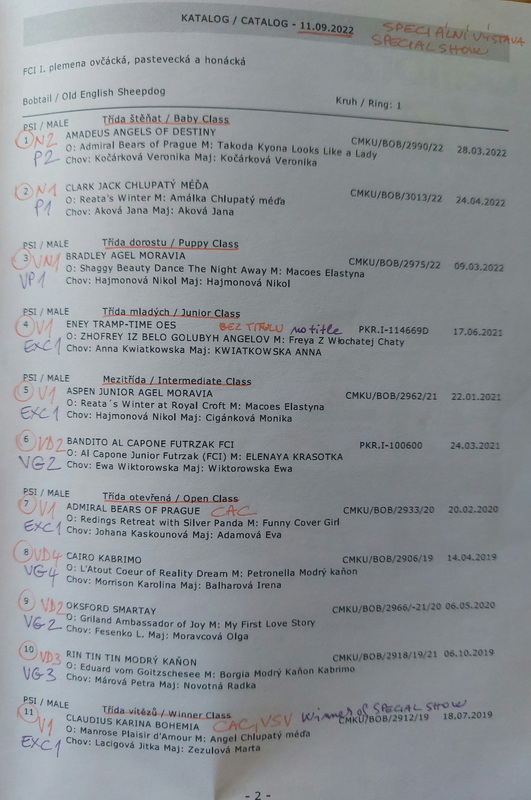 KATALOG / CATALOG - 11.09.2022 SPECIÁLNÍ VÝSTAVA
SPECIAL SHOW
FCI I. plemena ovčácká, pastevecká a honácká
Bobtail / Old English Sheepdog Kruh / Ring: 1
PSI / MALE Třída štěňat / Baby Class
1 N2 AMADEUS ANGELS OF DESTINY CMKU/BOB/2990/22 28.03.2022
O: Admiral Bears of Prague M: Takoda Kyona Looks Like a Lady
P2 Chov: Kočárková Veronika Maj: Kočárková Veronika
2 N1 CLARK JACK CHLUPATÝ MÉĎA CMKU/BOB/3013/22 24.04.2022
O: Reata's Winter M: Amálka Chlupatý méďa
P1 Chov: Aková Jana Maj: Aková Jana
PSI / MALE Třída dorostu / Puppy Class
3 VN1 BRADLEY AGEL MORAVIA CMKU/BOB/2975/22 09.03.2022
O: Shaggy Beauty Dance The Night Away M: Macoes Elastyna
VP1 Chov: Hajmonová Nikol Maj: Hajmonová Nikol
PSI / MALE Třída mladých / Junior Class
4 V1 ENEY TRAMP-TIME OES BEZ TITULU no title PKR.I-114669D 17.06.2021
O: ZHOFREY IZ BELO GOLUBYH ANGELOV M: Freya Z Włochatej Chaty
EXC1 Chov: Anna Kwiatkowska Maj: KWIATKOWSKA ANNA
PSI / MALE Mezitřída / Intermediate Class
5 V1 ASPEN JUNIOR AGEL MORAVIA CMKU/BOB/2962/21 22.01.2021
O: Reata´s Winter at Royal Croft M: Macoes Elastyna
EXC1 Chov: Hajmonová Nikol Maj: Cigánková Monika
6 VD2 BANDITO AL CAPONE FUTRZAK FCI PKR.I-100600 24.03.2021
O: Al Capone Junior Futrzak (FCI) M: ELENAYA KRASOTKA
VG2 Chov: Ewa Wiktorowska Maj: Wiktorowska Ewa
PSI / MALE Třída otevřená / Open Class
7 V1 ADMIRAL BEARS OF PRAGUE CAC CMKU/BOB/2933/20 20.02.2020
O: Redings Retreat with Silver Panda M: Funny Cover Girl
EXC1 Chov: Johana Kaskounová Maj: Adamová Eva
8 VD4 CAIRO KABRIMO CMKU/BOB/2906/19 14.04.2019
O: L'Atout Coeur of Reality Dream M: Petronella Modrý kaňon
VG4 Chov: Morrison Karolina Maj: Balharová Irena
9 VD2 OKSFORD SMARTAY CMKU/BOB/2966/-21/20 06.05.2020
O: Griland Ambassador of Joy M: My First Love Story
VG2 Chov: Fesenko L. Maj: Moravcová Olga
10 VD3 RIN TIN TIN MODRÝ KAŇON CMKU/BOB/2918/19/21 06.10.2019
O: Eduard vom Goitzschesee M: Borgia Modrý Kaňon Kabrimo
VG3 Chov: Márová Petra Maj: Novotná Radka
PSI / MALE Třída vítězů / Winner Class
11 V1 CLAUDIUS KARINA BOHEMIA CAC, VSV Winner of SPECIAL SHOW CMKU/BOB/2912/19 18.07.2019
O: Manrose Plaisir d'Amour M: Angel Chlupatý méďa
EXC1 Chov: Lacigová Jitka Maj: Zezulová Marta
- 2 -